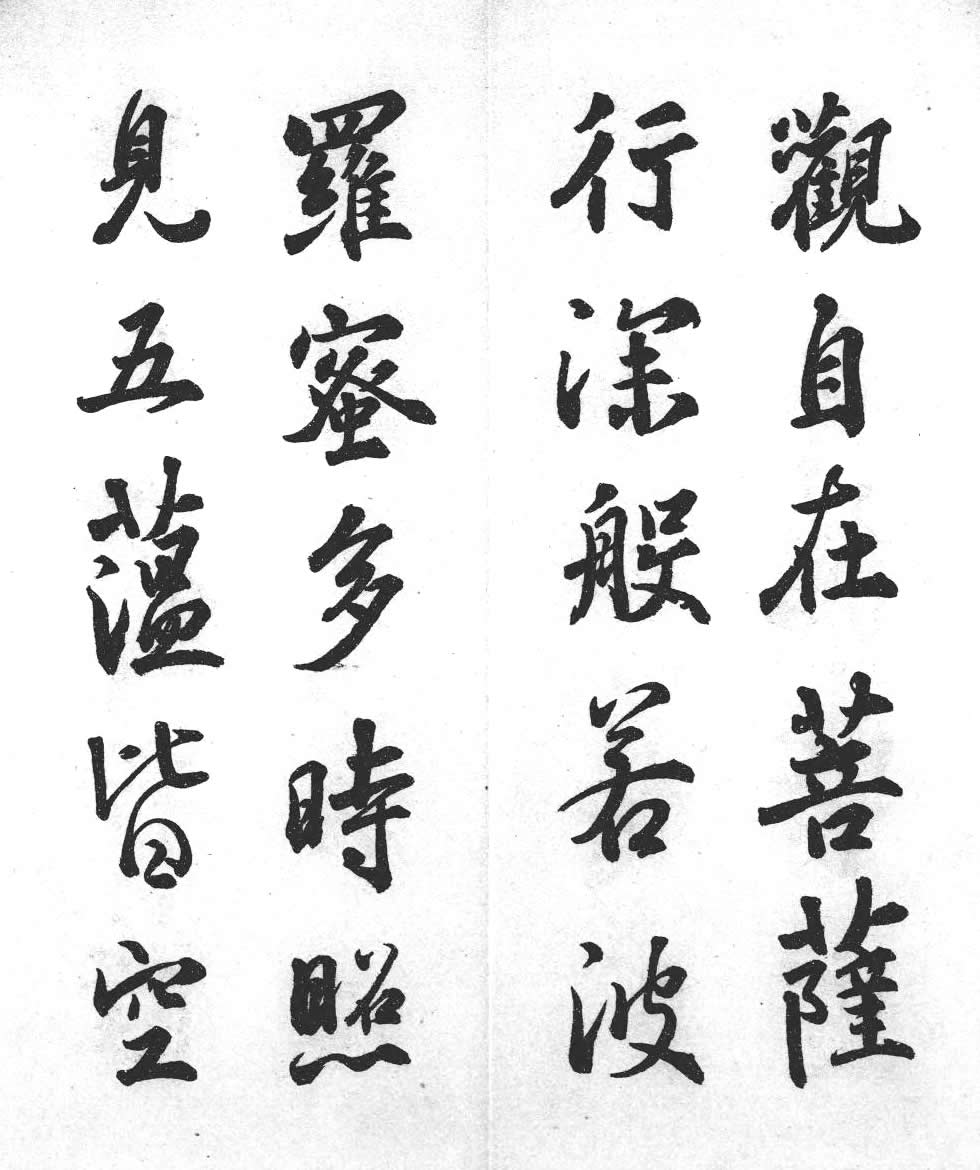 觀自在菩薩
行深般若波
羅蜜多時照
見五蕰皆空